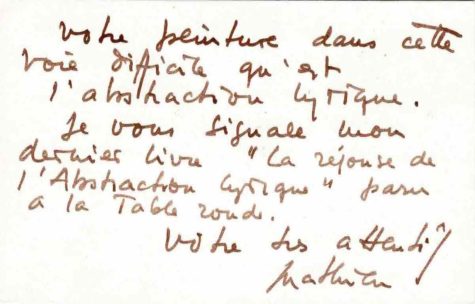 votre peinture dans cette
voie difficile qu'est
l'abstraction lyrique.
Je vous signale mon
dernier livre "La réponse de
l'Abstraction lyrique" paru
à la Table ronde.
Votre très attentif
Mathieu